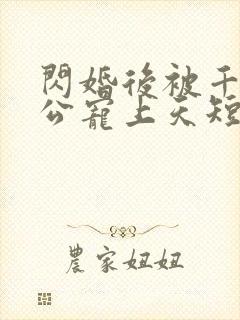 閃婚後被千
公寵上天短
農家妞妞